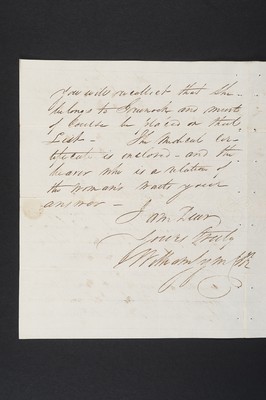 You will recollect that she
belongs to Greenock and must
of course be placed on that
List - The Medical Cer-
tificate is enclosed - and the
bearer who is a relation of
the woman's waits your
answer -
I am Dear
Yours truly
William